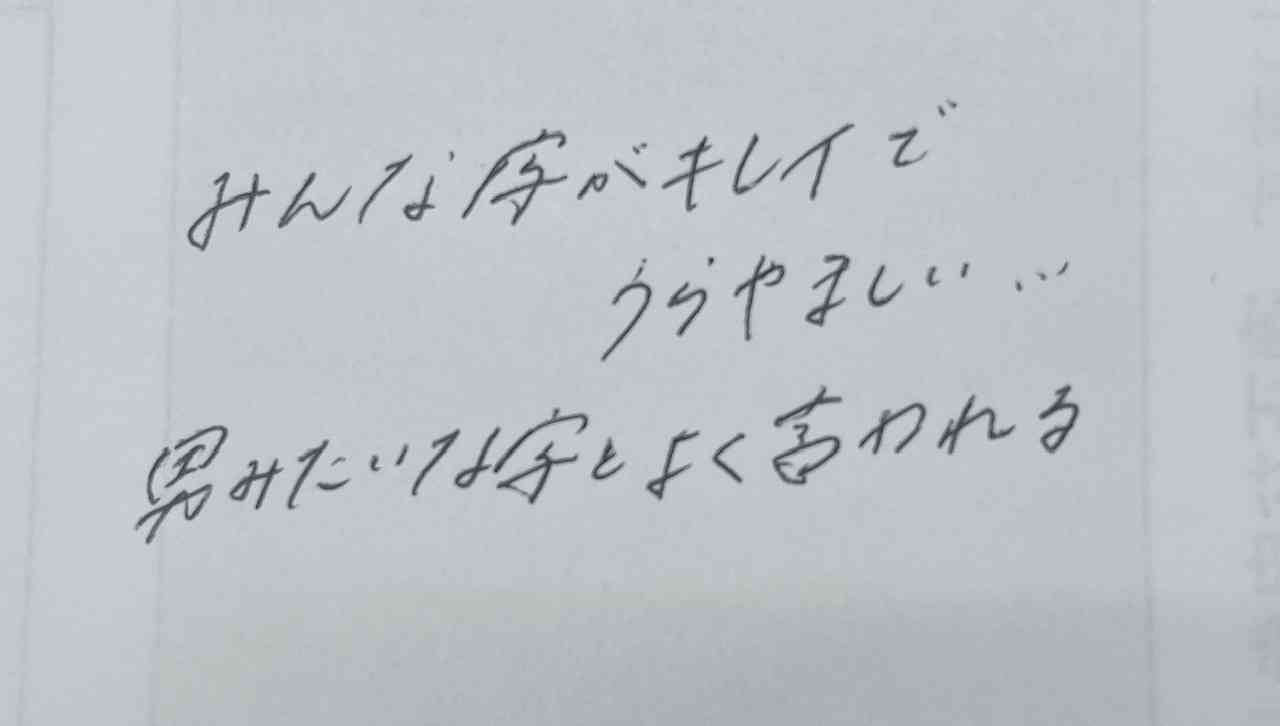 みんな字がキレイで
うらやましい…
男みたいな字とよく言われる